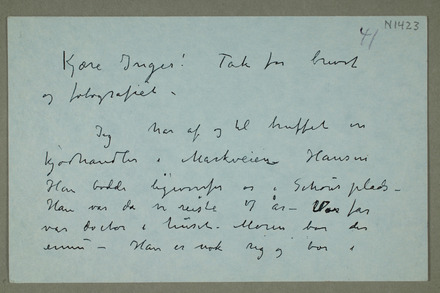 41 N1423
Kjære Inger! Tak for brevet
og fotografiet.
Jeg har af og til truffet en
kjødhandler i Markveien Hansen
Han bodde ligeoverfor os i Schous plads –
Han var da vi reiste 17 år – far
var doctor i huset. Moren bor der
ennu – Han er nok rig og bor i